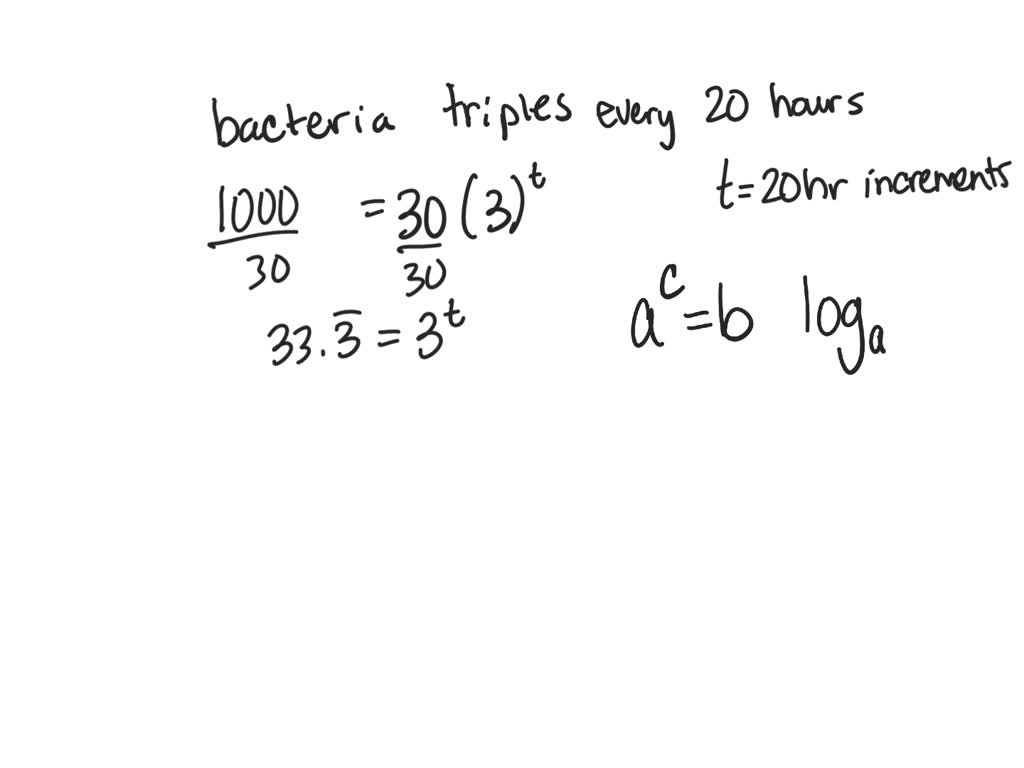 bacteria triples every 20 hours
t=20hr increments
1000/30 = 30/30 (3)^t
33.3̅ = 3^t
a^c=b log_a